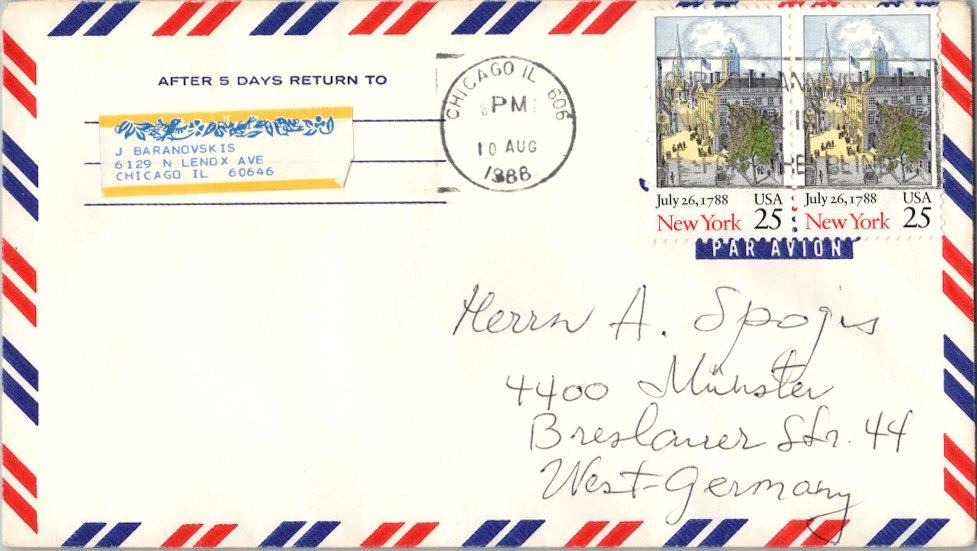 AFTER 5 DAYS RETURN TO
J BARANOVSKIS
6129 N LENOX AVE
CHICAGO IL 60646
CHICAGO IL 606
PM
10 AUG
1988
July 26, 1788 USA
New York 25
July 26, 1788 USA
New York 25
PAR AVION
Herrn A. Spogis
4400 Münster
Breslauer Str. 44
West-Germany